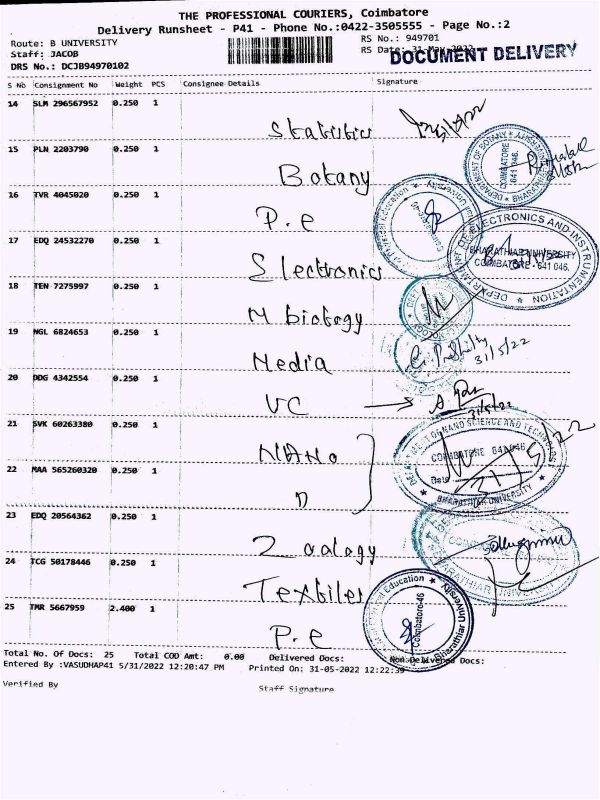 THE PROFESSIONAL COURIERS, Coimbatore
Delivery Runsheet - P41 - Phone No.:0422-3505555 - Page No.:2
Route: B UNIVERSITY
RS No.: 949701
Staff: JACOB
RS Date: 31-May-2022
DOCUMENT DELIVERY
DRS No.: DCJB94970102
S No Consignment No Weight PCS Consignee Details Signature
14 SLM 296567952 0.250 1
Statistics
15 PLN 2203790 0.250 1
Botany
16 TVR 4045020 0.250 1
P.e
17 EDQ 24532270 0.250 1
Electronics
18 TEN 7275997 0.250 1
M biology
19 NGL 6824653 0.250 1
Media 31/5/22
20 DDG 4342554 0.250 1
VC 31/5/22
21 SVK 60263380 0.250 1
NANO
22 MAA 565260320 0.250 1
31/5/22
23 EDQ 20564362 0.250 1
Zoology
24 TCG 50178446 0.250 1
Textiles
25 TMR 5667959 2.400 1
P.e
DEPARTMENT OF BOTANY
COIMBATORE
641 046.
DEPARTMENT OF ELECTRONICS AND INSTRUMENTATION
BHARATHIAR UNIVERSITY
COIMBATORE - 641 046.
COIMBATORE 641 046
Date
BHARATHIAR UNIVERSITY
Physical Education
Coimbatore-46
Bharathiar University
Total No. Of Docs: 25 Total COD Amt: 0.00 Delivered Docs: Non Delivered Docs:
Entered By :VASUDHAP41 5/31/2022 12:20:47 PM Printed On: 31-05-2022 12:22:39
Verified By Staff Signature